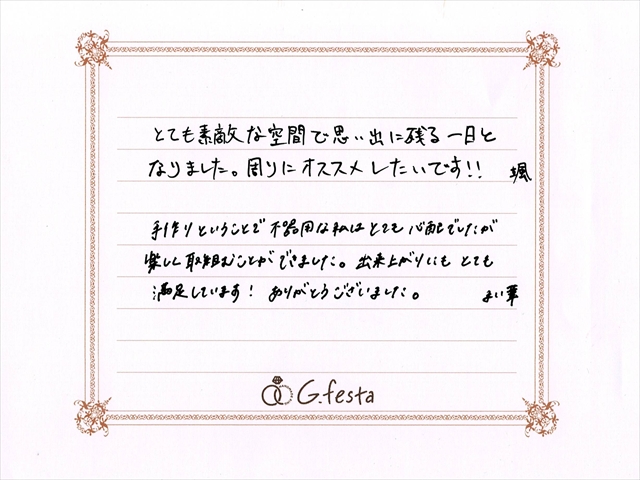 とても素敵な空間で思い出に残る一日と
なりました。周りにオススメしたいです!! 颯
手作りということで不器用な私はとても心配でしたが
楽しく取組むことができました。出来上がりにもとても
満足しています! ありがとうございました。 まい華
G.festa